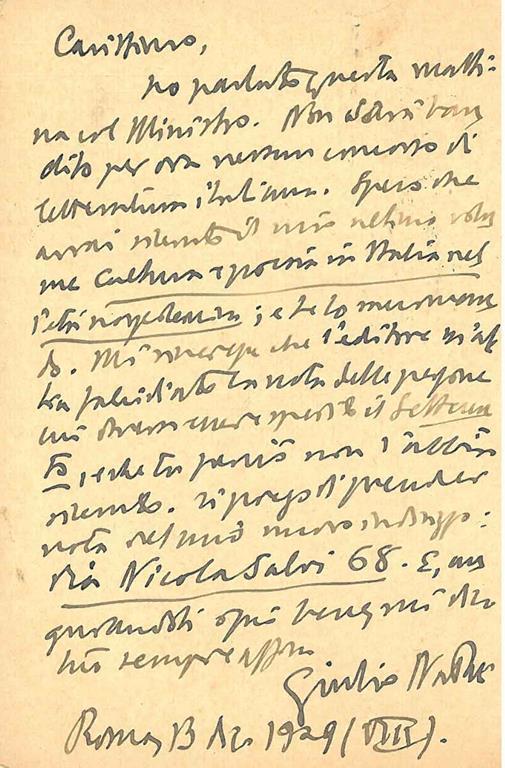 Carissimo,
ho parlato questa matti-
na col Ministro. Non sarà ban
dito per ora nessun concorso di
letteratura italiana. Spero che
avrai ricevuto il mio ultimo volu
me Cultura e poesia in Italia nel
l'età napoleonica; e te lo raccoman
do. Mi rincresce che l'editore m'ab
bia la nota delle persone
cui doveva essere spedito il Settecen
to, e che tu perciò non l'abbia
ricevuto. Ti prego di prender
nota del mio nuovo indirizzo:
Via Nicola Salvi 68. E, au
gurandoti ogni bene, mi dico
tuo sempre aff.mo
Giulio Natali
Roma, 13 1929 (VIII).